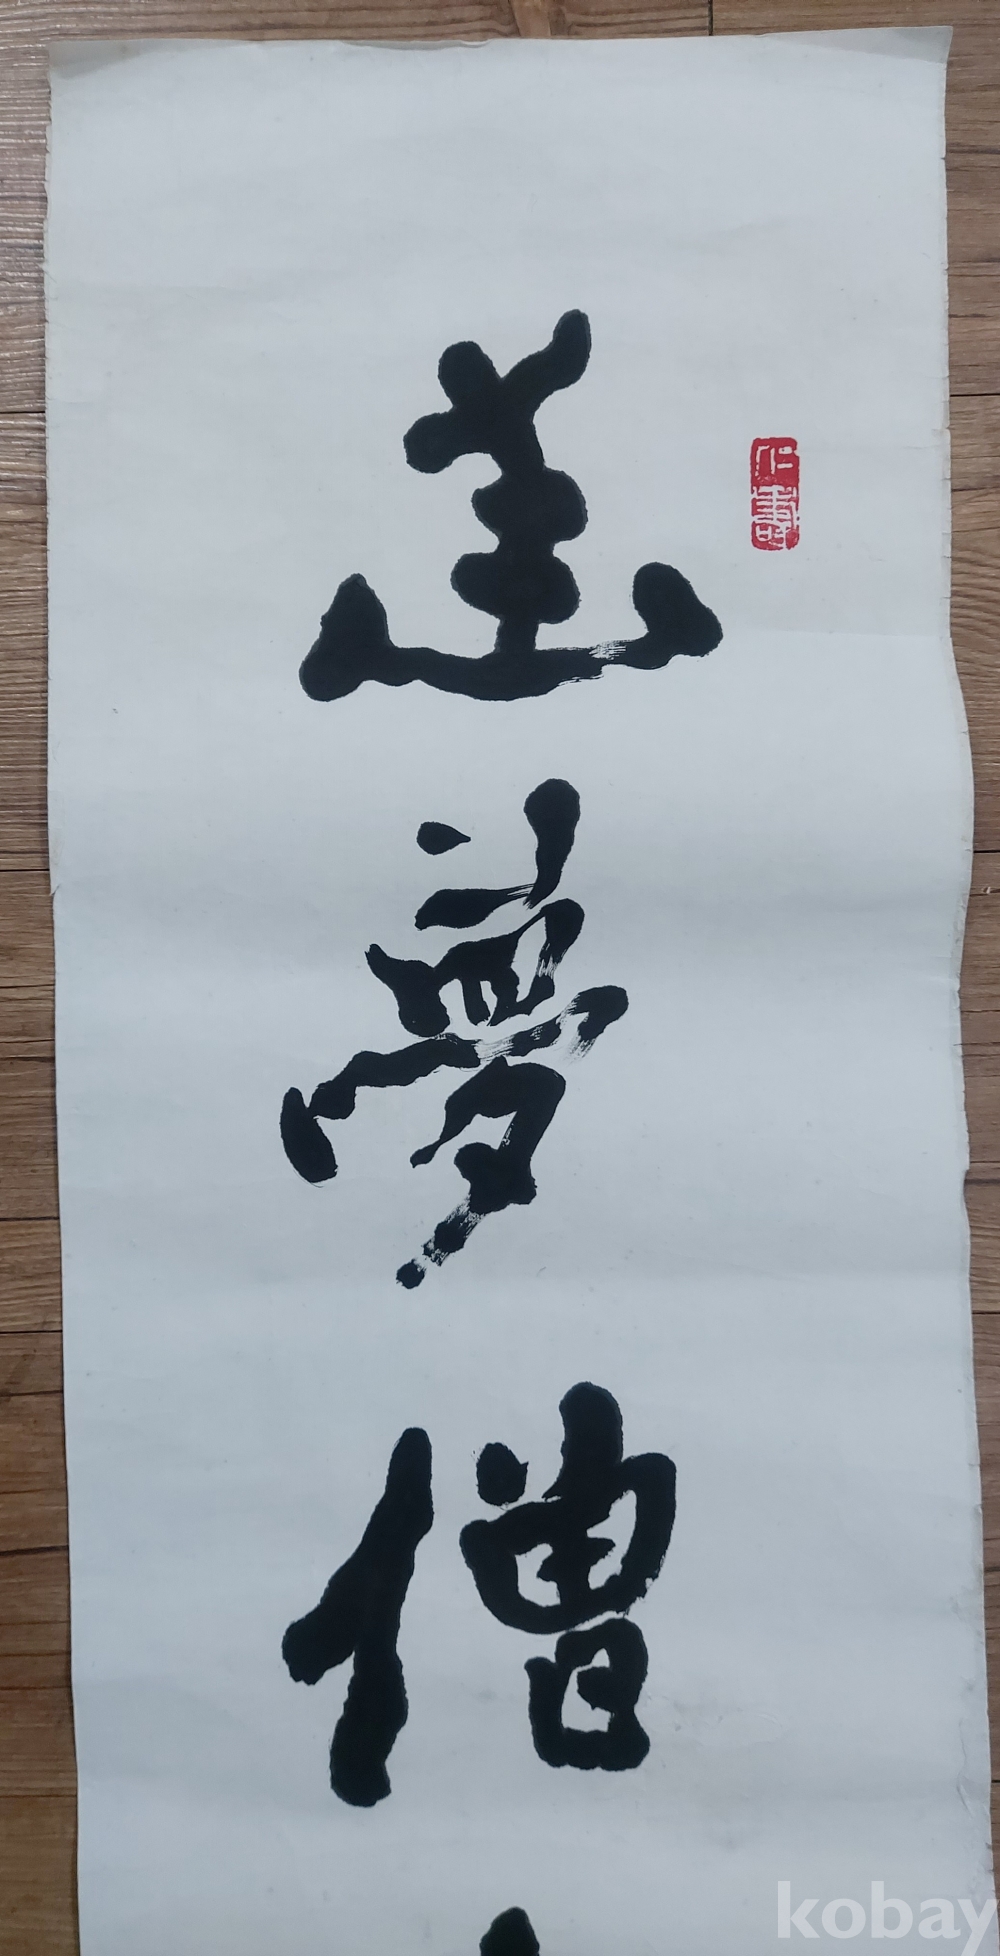 仁壽
夢僧
kobay